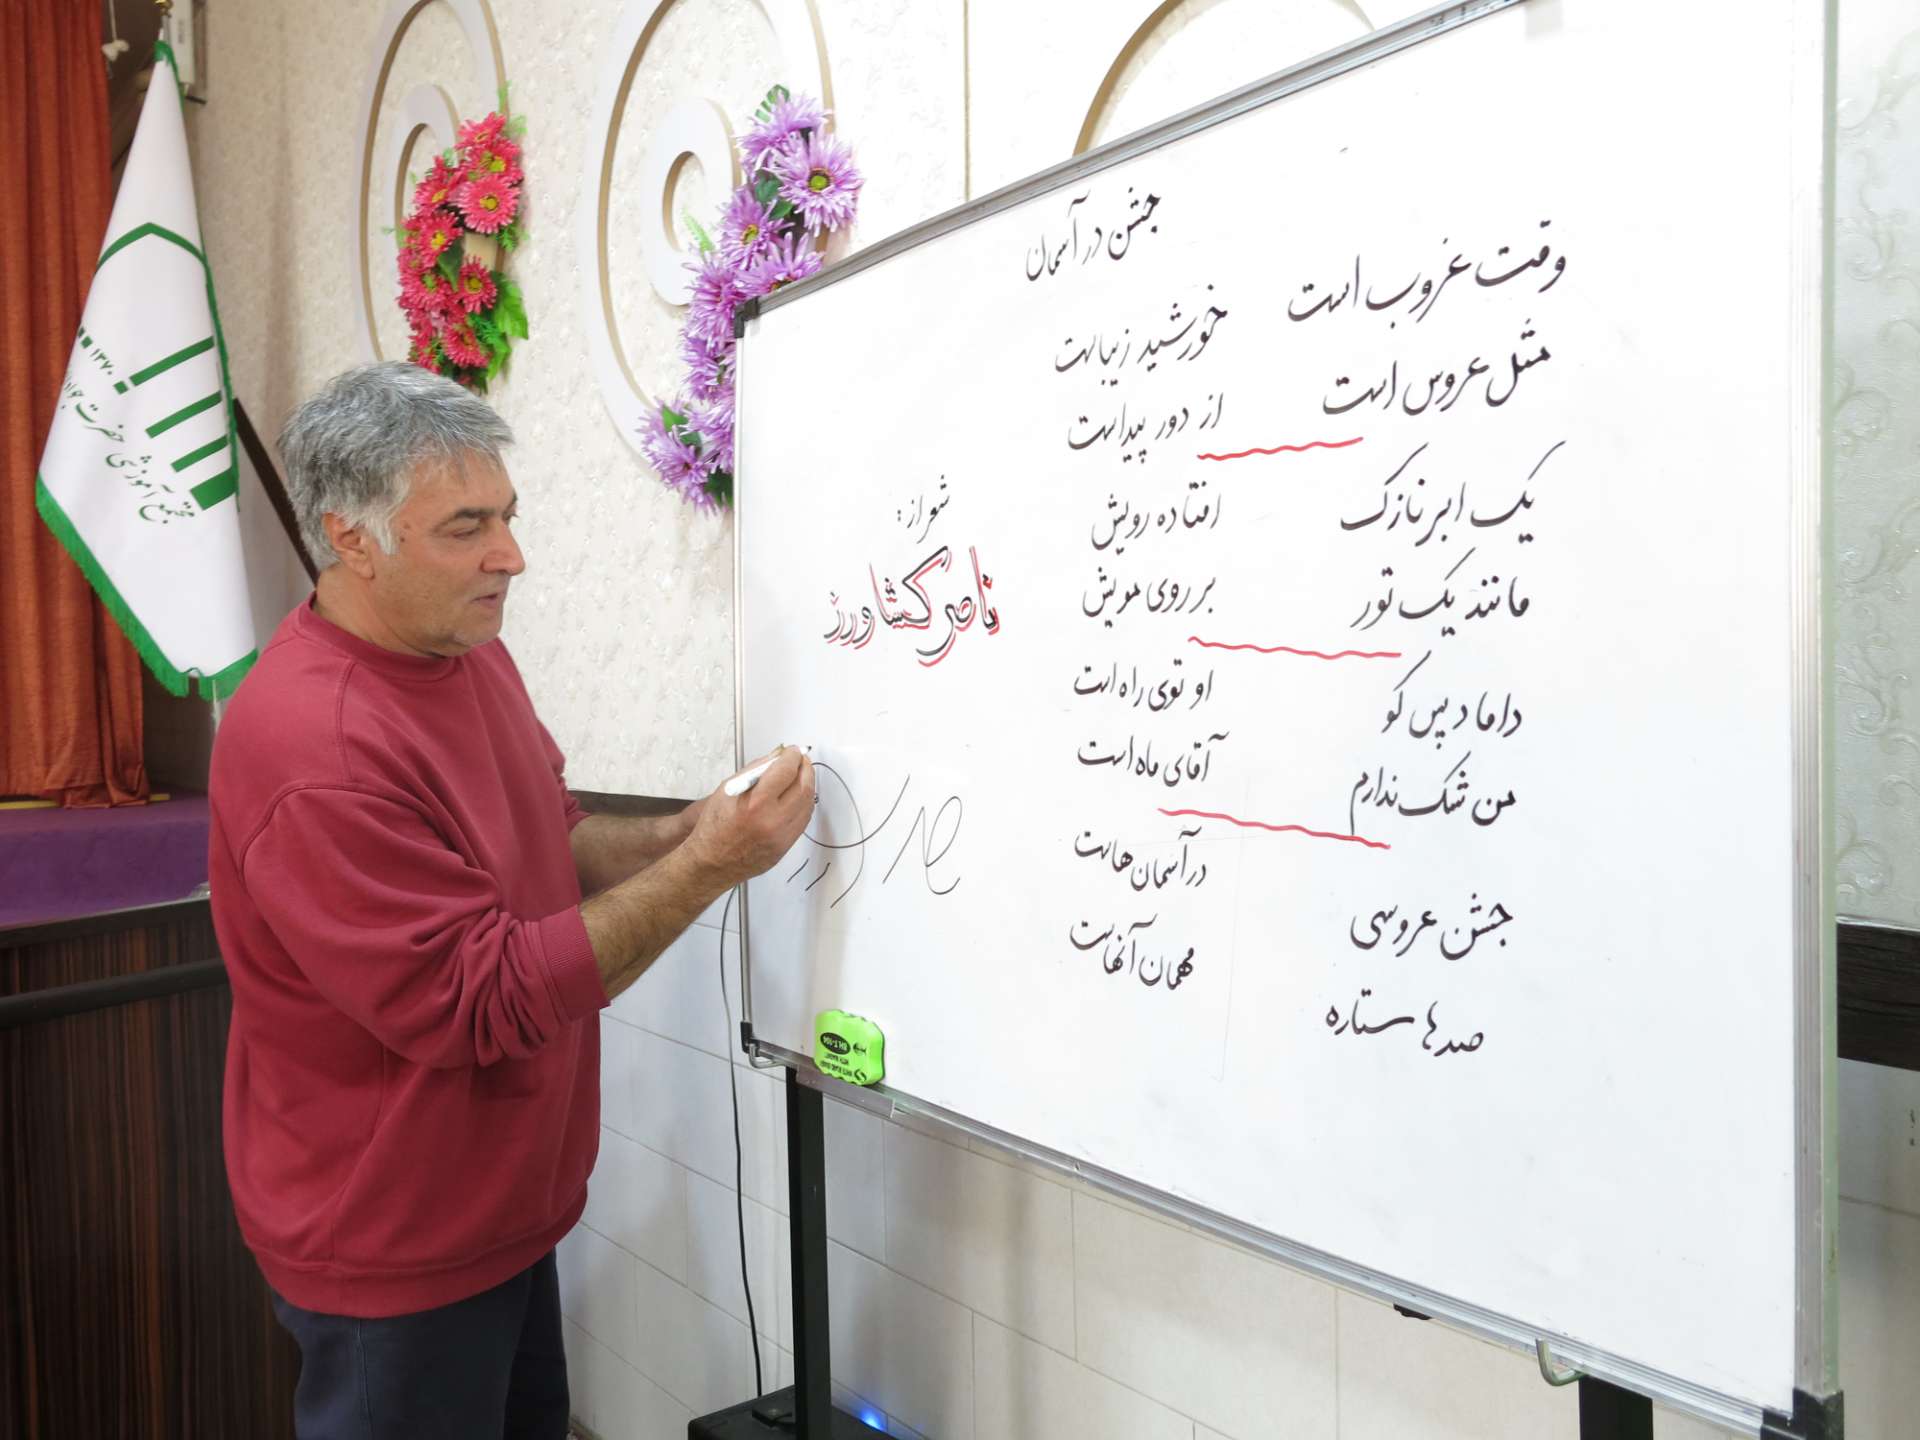 جشن در آسمان
وقت غروب است
خورشید زیباست
مثل عروس است
از دور پیداست
یک ابر نازک
افتاده رویش
مانند یک تور
بر روی مویش
داماد پس کو
او توی راه است
من شک ندارم
آقای ماه است
جشن عروسی
در آسمان هاست
صدها ستاره
مهمان آنهاست
شعر از:
ناصر کشاورز
۱۳۷۰
مجتمع آموزشی حضرت جواد
BH.T-104